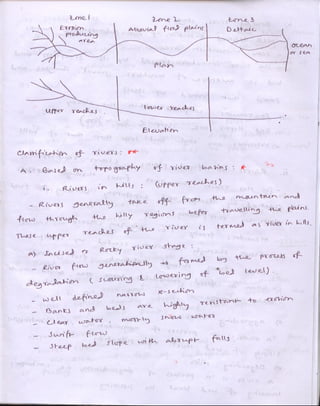 Zone 1 Zone 2 Zone 3
Erosion Alluvial flood plains Deltaic
producing
area
Ocean
or sea
Plan
Upper reaches lower reaches
Elevation
Classification of rivers:
A. Based on topography of river basins:
i. Rivers in hills: (upper reaches)
- Rivers generally take off from the mountain and
flow through the hilly regions before travelling the plains
These upper reaches of the river is termed as river in hills.
a) Incised or Rocky river stage:
- River flow generationally formed by the process of
degradation (scouring & lowering of bed level).
- well defined narrow x-section
- Banks and beds are highly resistant to erosion
- Clear water, mostly snow water
- Swift flow
- Steep bed slope with abrupt falls